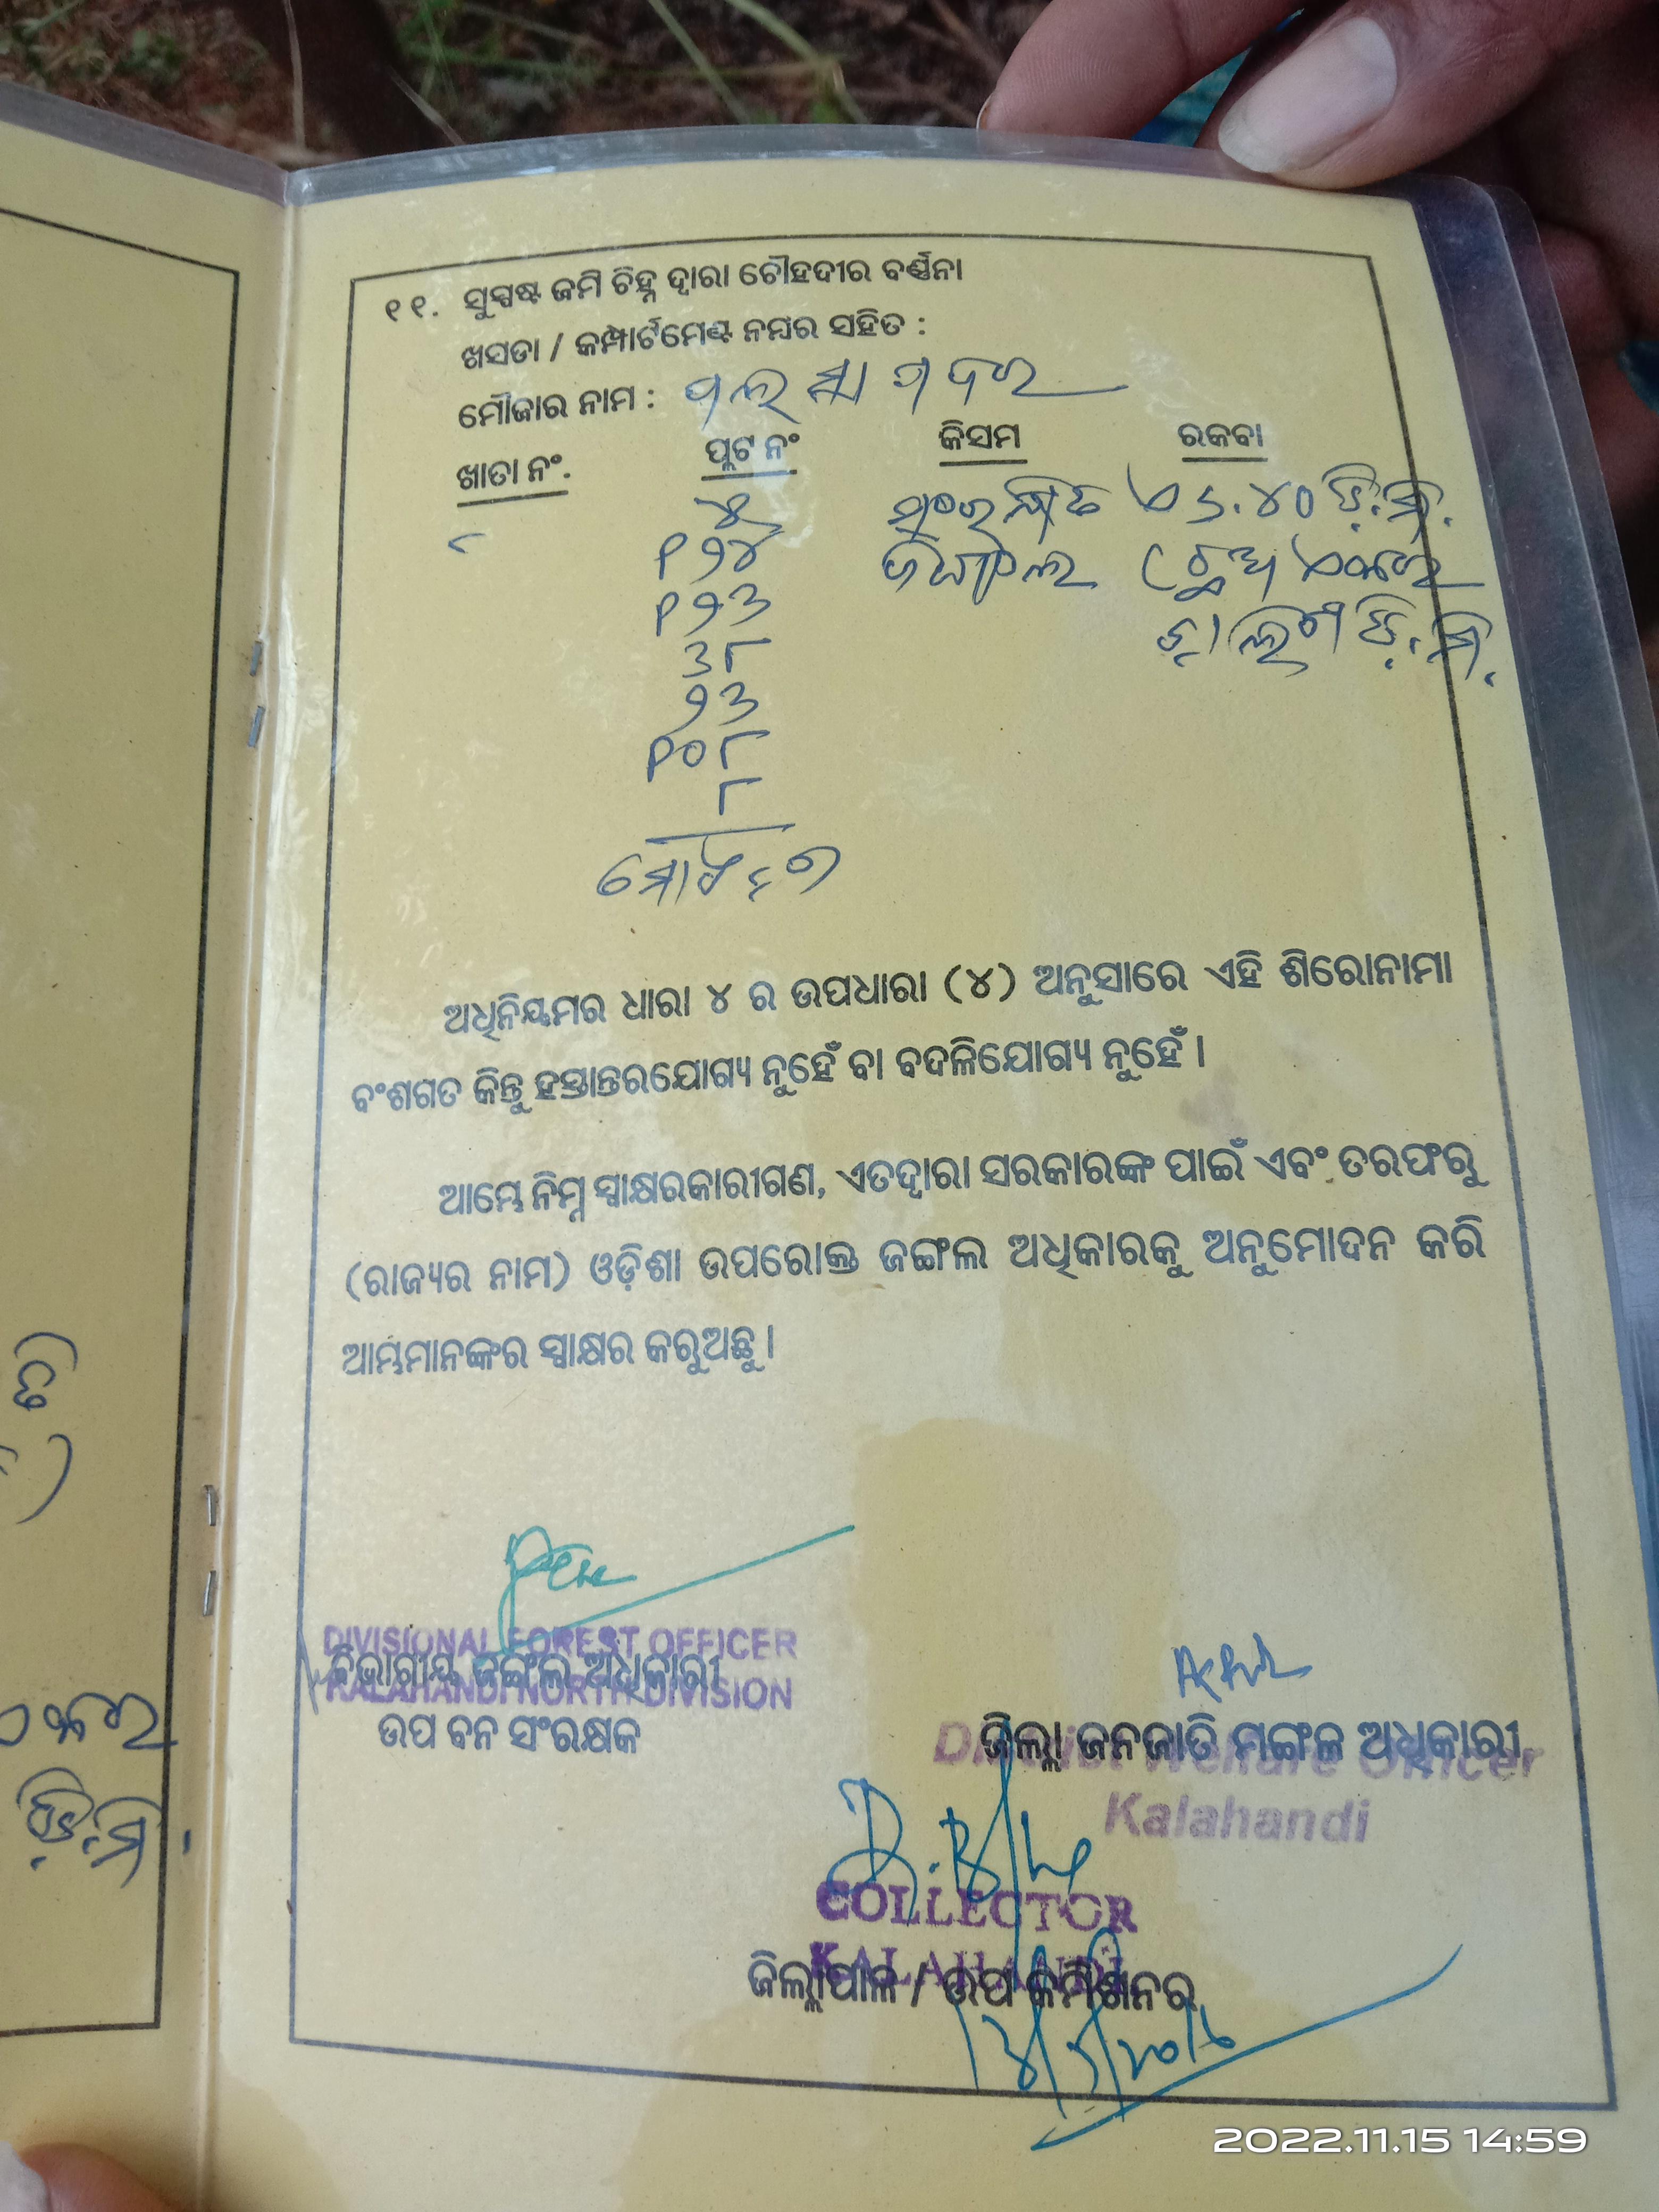 ୧୧. ସୁସ୍ପଷ୍ଟ ଜମି ଚିହ୍ନ ଦ୍ୱାରା ଚୌହଦୀର ବର୍ଣ୍ଣନା
ଖସଡା / କମ୍ପାର୍ଟମେଣ୍ଟ ନମ୍ବର ସହିତ :
ମୌଜାର ନାମ :
ଖାତା ନଂ. ପ୍ଲଟ ନଂ କିସମ ରକବା
୪୦ ଡ଼ି.ମି.
୮ ୧୨୪
୧୨୩
୩୮
୨୩
୧୦୮
୮
ଚାଳିଶ ଡ଼ି.ମି.
ଅଧିନିୟମର ଧାରା ୪ ର ଉପଧାରା (୪) ଅନୁସାରେ ଏହି ଶିରୋନାମା
ବଂଶଗତ କିନ୍ତୁ ହସ୍ତାନ୍ତରଯୋଗ୍ୟ ନୁହେଁ ବା ବଦଳିଯୋଗ୍ୟ ନୁହେଁ ।
ଆମ୍ଭେ ନିମ୍ନ ସ୍ୱାକ୍ଷରକାରୀଗଣ, ଏତଦ୍ୱାରା ସରକାରଙ୍କ ପାଇଁ ଏବଂ ତରଫରୁ
(ରାଜ୍ୟର ନାମ) ଓଡ଼ିଶା ଉପରୋକ୍ତ ଜଙ୍ଗଲ ଅଧିକାରକୁ ଅନୁମୋଦନ କରି
ଆମ୍ଭମାନଙ୍କର ସ୍ୱାକ୍ଷର କରୁଅଛୁ ।
DIVISIONAL FOREST OFFICER
ବିଭାଗୀୟ ଜଙ୍ଗଲ ଅଧିକାରୀ
KALAHANDI NORTH DIVISION
ଉପ ବନ ସଂରକ୍ଷକ
ଜିଲ୍ଲା ଜନଜାତି ମଙ୍ଗଳ ଅଧିକାରୀ
District Welfare Officer
Kalahandi
COLLECTOR
KALAHANDI
ଜିଲ୍ଲାପାଳ / ଉପ କମିଶନର
2022.11.15 14:59